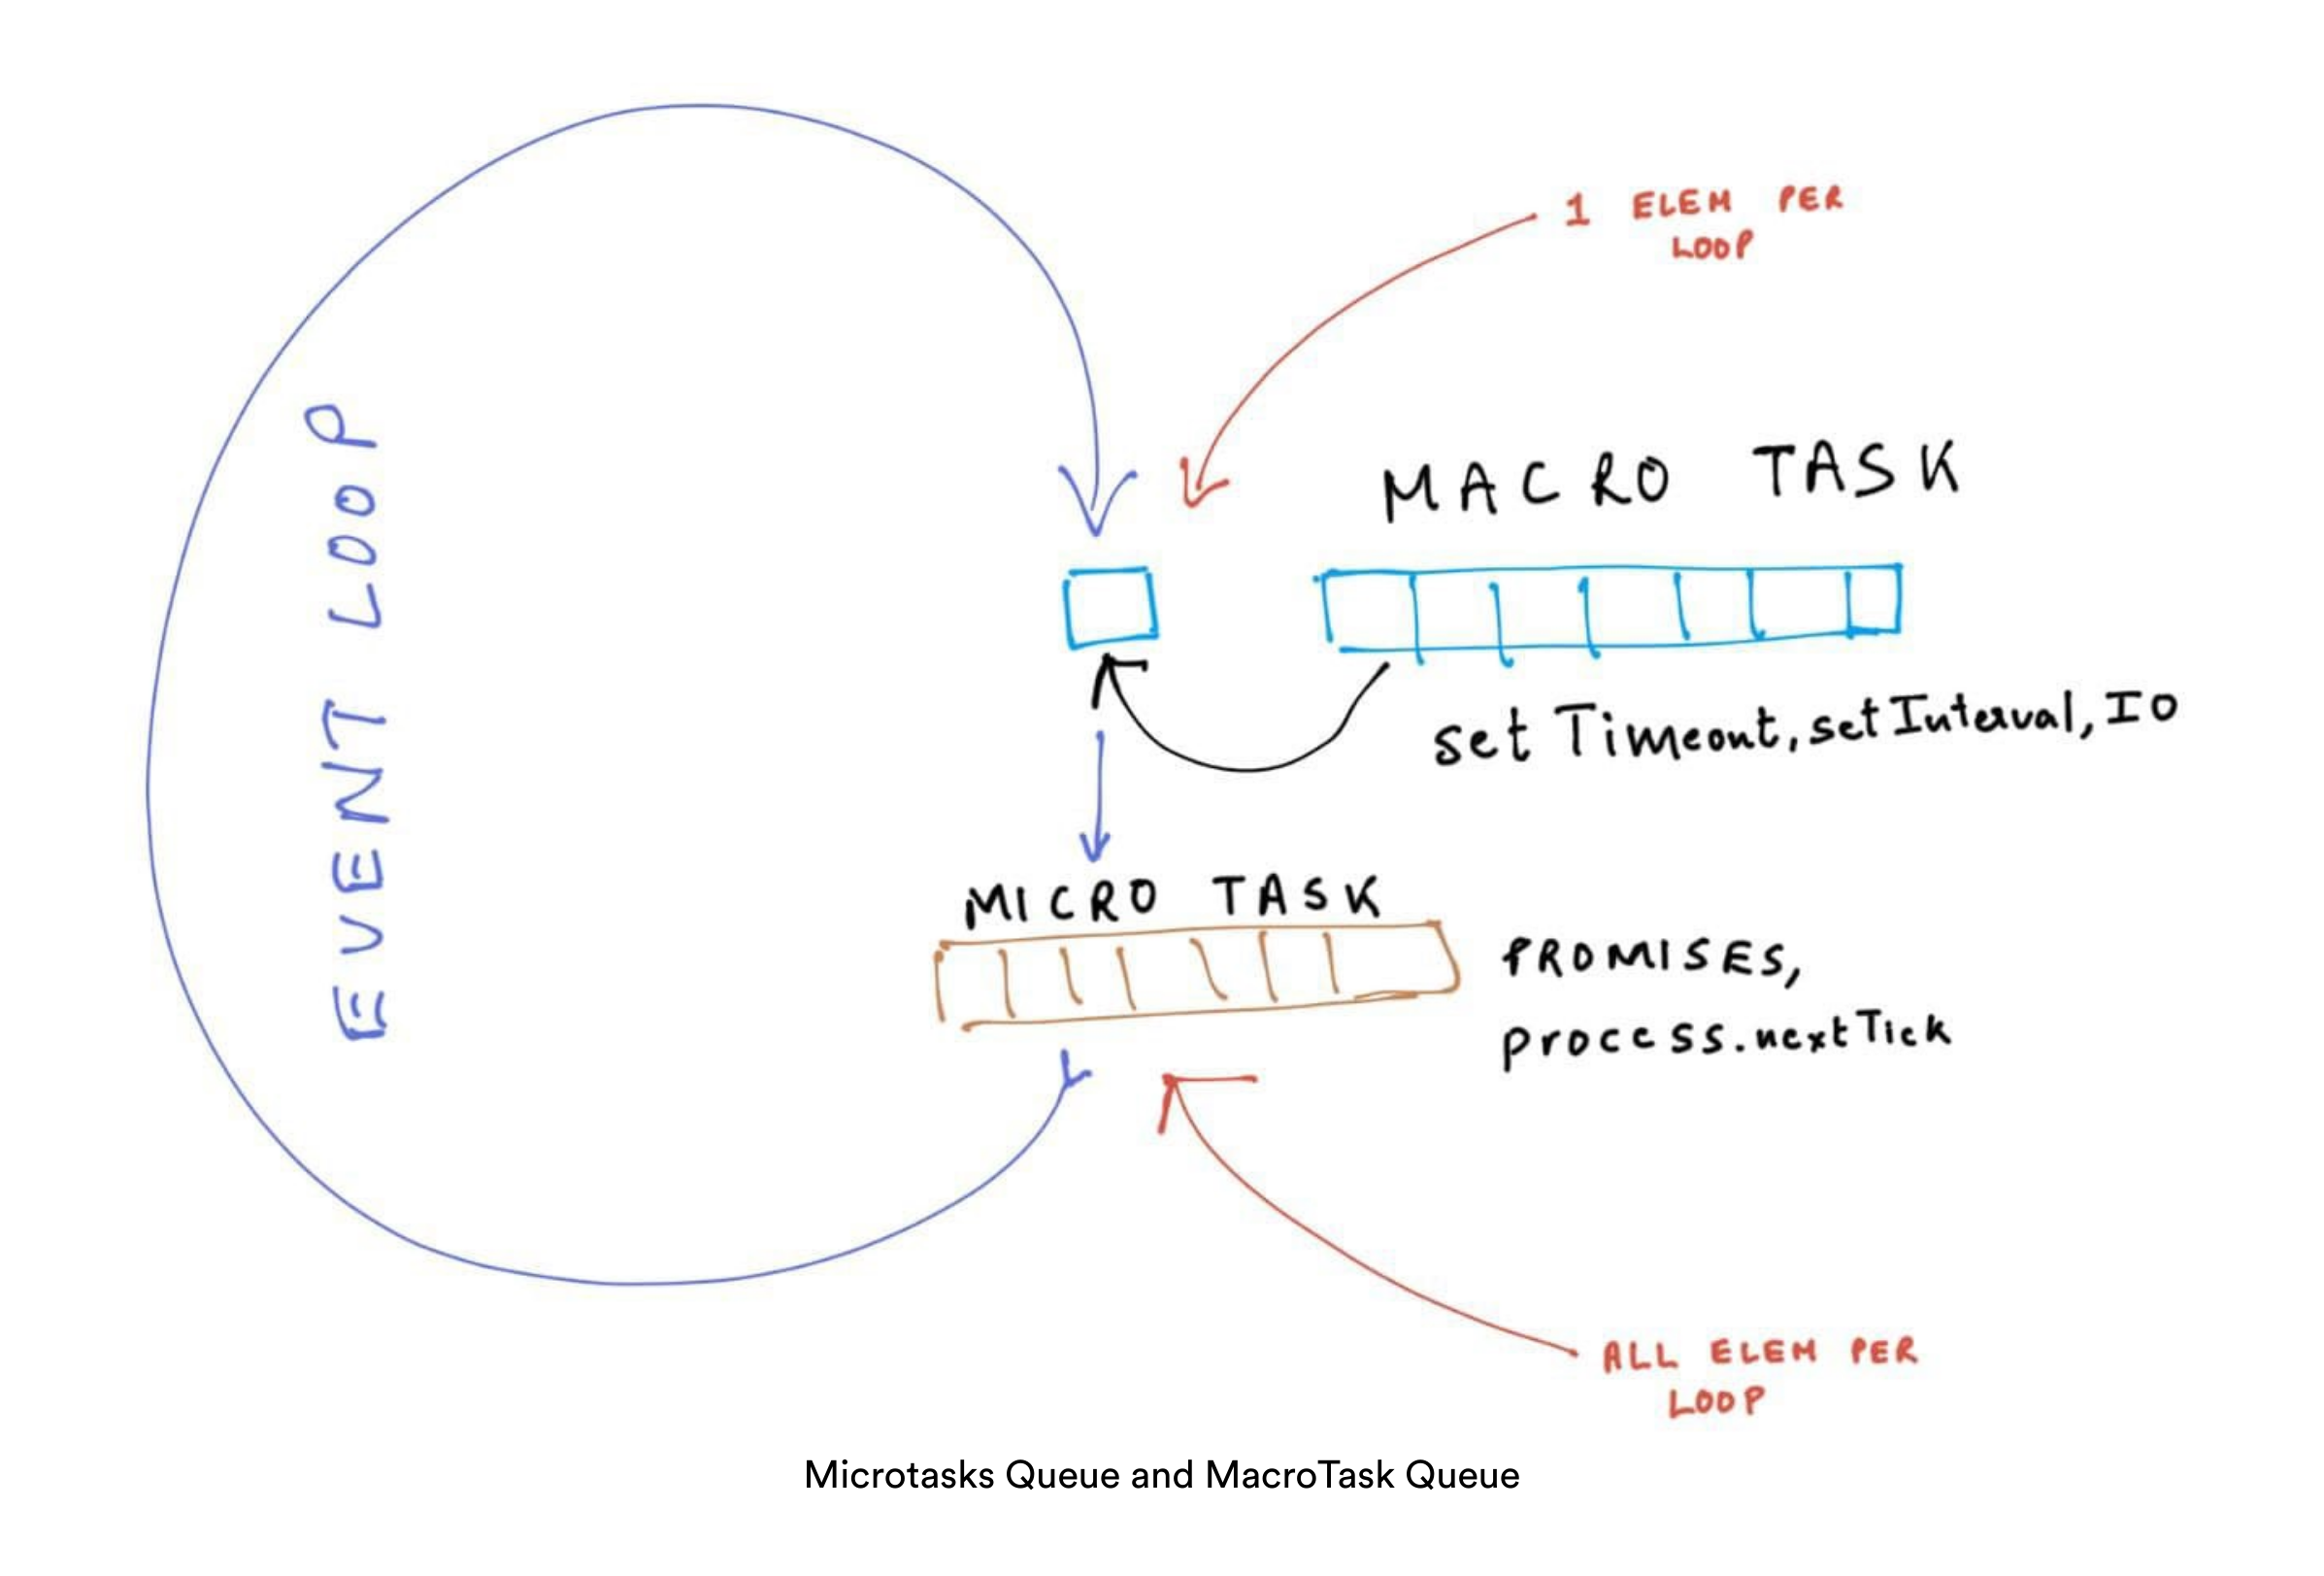 1 ELEM PER
LOOP
EVENT LOOP
MACRO TASK
set Timeout, setInterval, IO
MICRO TASK
PROMISES,
process.nextTick
ALL ELEM PER
LOOP
Microtasks Queue and MacroTask Queue